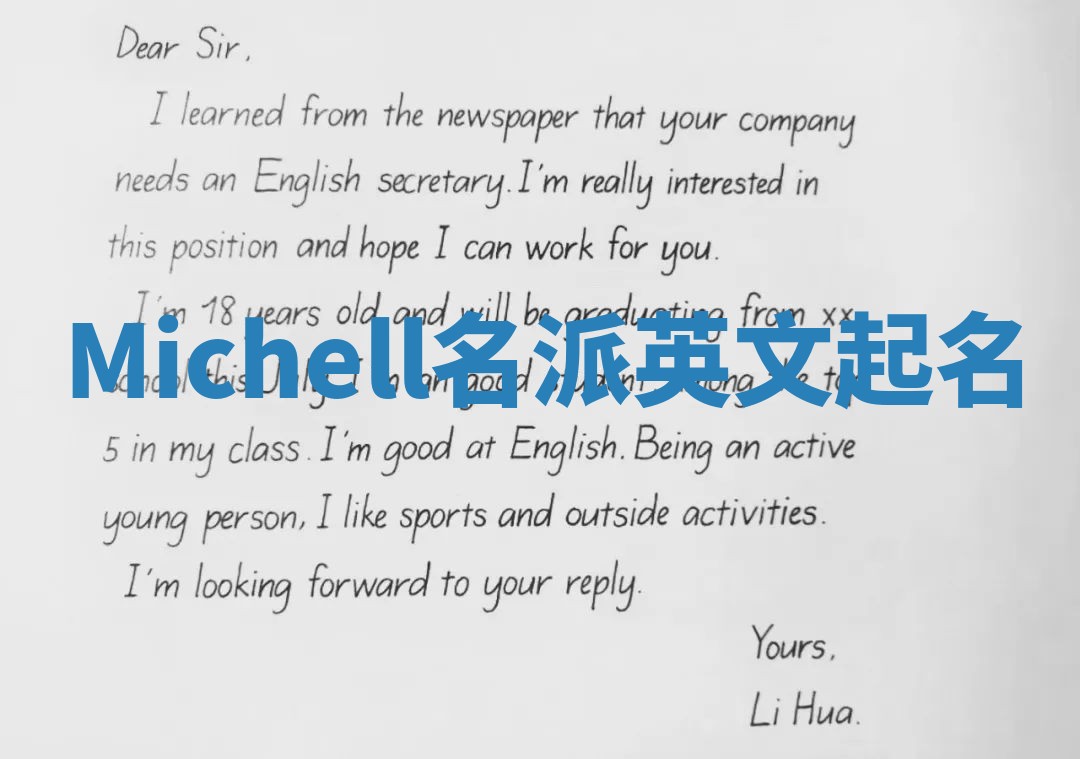 Dear Sir,
I learned from the newspaper that your company
needs an English secretary. I'm really interested in
this position and hope I can work for you.
I'm 18 years old and will be graduating from xx
Michell名派英文起名
school this July. I'm a good student among the top
5 in my class. I'm good at English. Being an active
young person, I like sports and outside activities.
I'm looking forward to your reply.
Yours,
Li Hua.